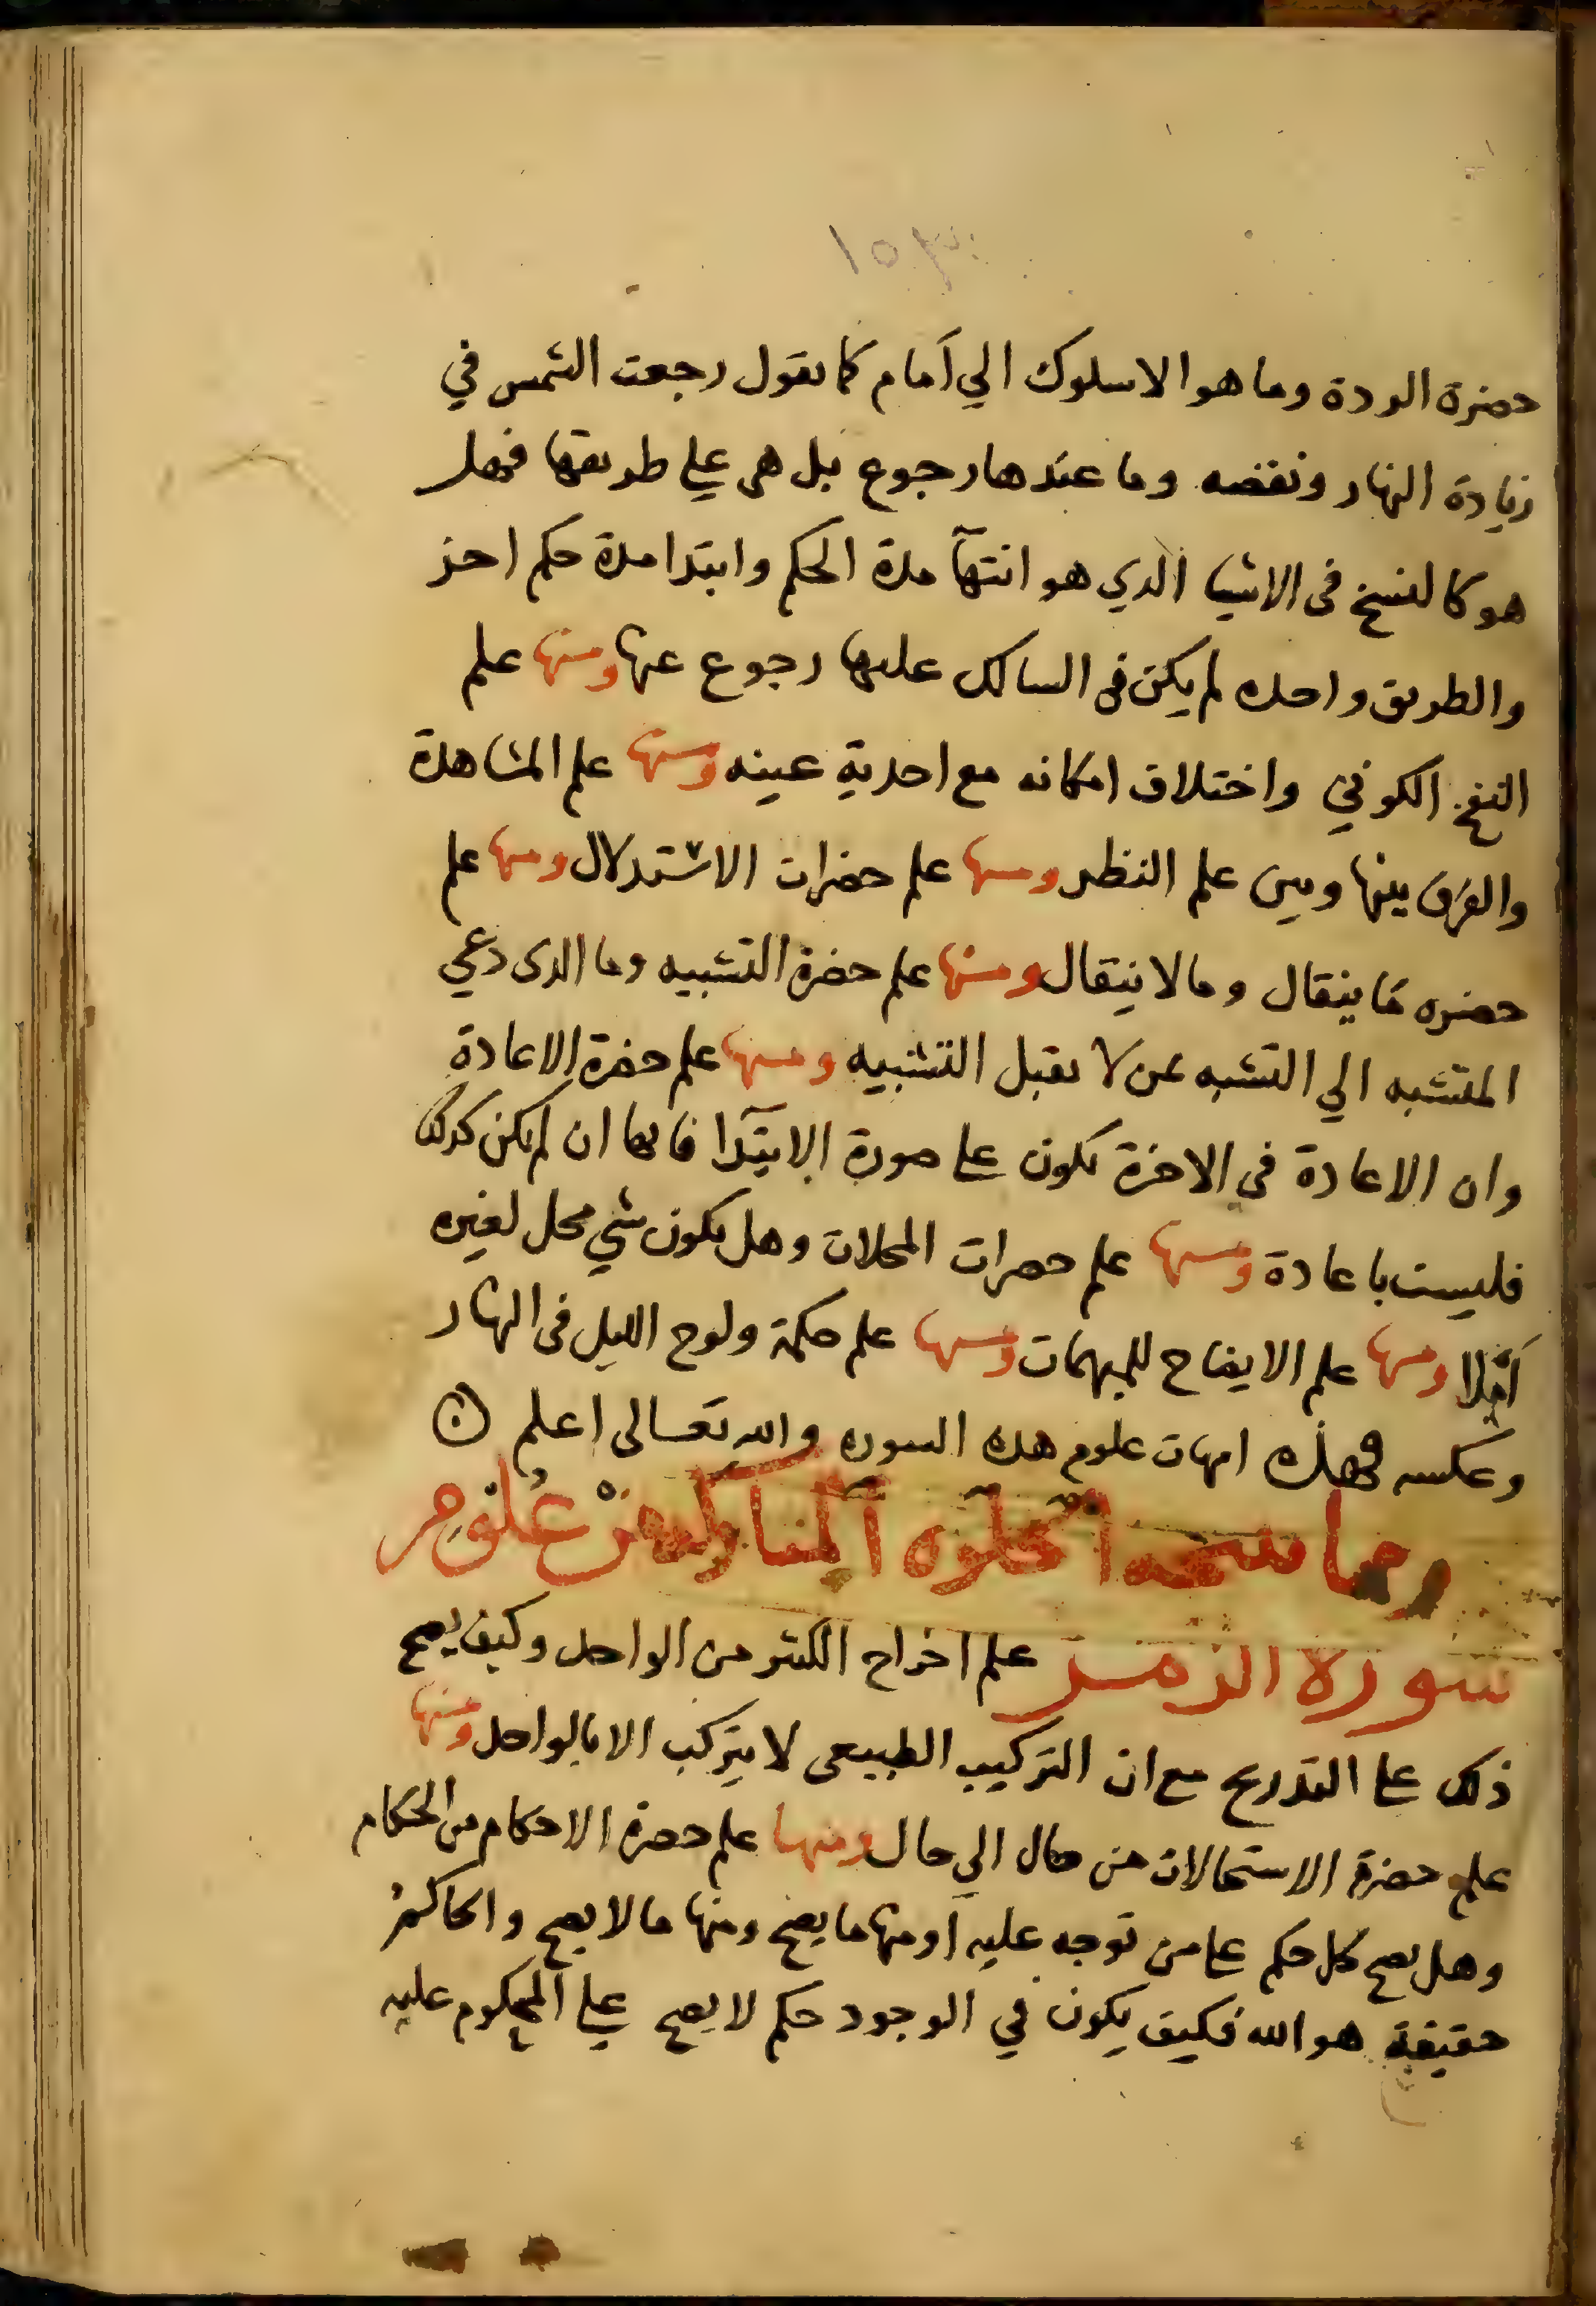 ١٥٣
حضرة الردة وما هو الا سلوك الي أمام كما نقول رجعت الشمس في
زيادة النهار ونقصه وما عندها رجوع بل هى علي طريقها فهل
هو كالنسخ فى الاشيا الذي هو انتهآ مدة الحكم وابتدا مدة حكم اخر
والطريق واحده لم يكن فى السالك عليها رجوع عنها ومنها علم
النفخ الكوني واختلاف امكانه مع احدية عينه ومنها علم المشاهدة
والفرق بينها وبين علم النظر ومنها علم حضرات الاستدلال ومنها علم
حضره ما ينقال وما لا ينقال ومنها علم حضرة التشبيه وما الذى دعي
المتشبه الي التشبه بمن لا يقبل التشبيه ومنها علم حضرة الاعادة
وان الاعادة في الاخرة تكون على صورة الابتدآ فانها ان لم يكن كذلك
فليست باعادة ومنها علم حضرات المحلات وهل يكون شي محل لغيره
أم لا ومنها علم الايضاح للمبهمات ومنها علم حكمة ولوج الليل فى النهار
وعكسه فهذه امهات علوم هذه السوره والله تعالى اعلم
ومما تنتجه الخلوه المباركه من علوم
سورة الزمر علم اخراج الكثير من الواحد وكيف يصح
ذلك على التدريج مع ان التركيب الطبيعى لا يتركب الا بالواحد ومنها
علم حضرة الاستحالات من حال الي حال ومنها علم حضرة الاحكام من الحكام
وهل يصح كل حكم على من توجه عليه أو منها ما يصح ومنها ما لا يصح والحاكم
حقيقة هو الله فكيف يكون في الوجود حكم لا يصح علي المحكوم عليه